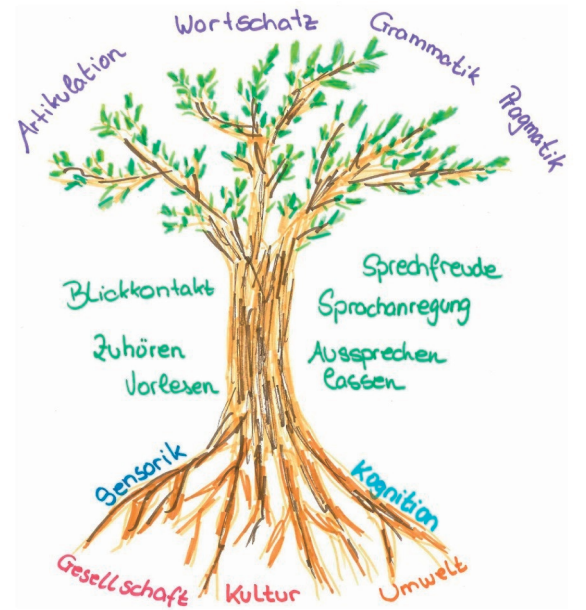 Artikulation
Wortschatz
Grammatik
Pragmatik
Blickkontakt
Sprechfreude
Sprachanregung
Zuhören
Vorlesen
Aussprechen
lassen
Sensorik
Kognition
Gesellschaft
Kultur
Umwelt